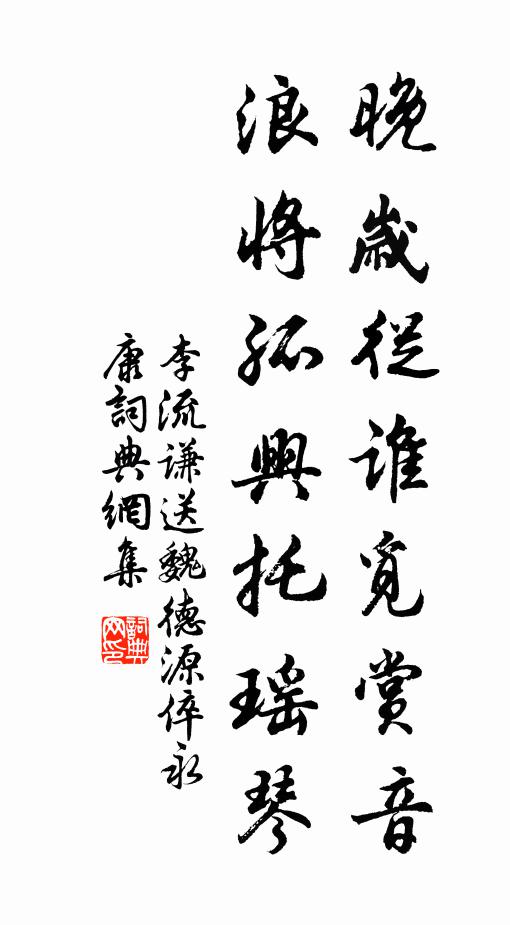 晚歲從誰覓賞音
浪將孤興托瑶琴
李流謙送魏德源倅永
康詞典網集
詞典
网印